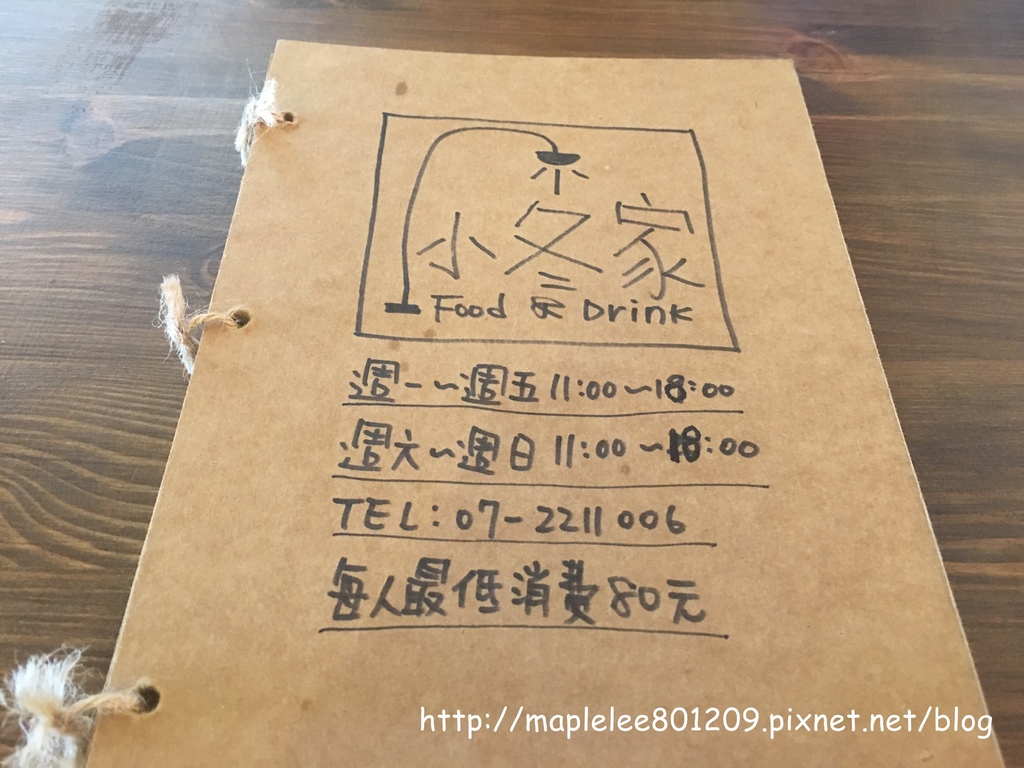 小冬家
Food & Drink
週一~週五 11:00~18:00
週六~週日 11:00~18:00
TEL: 07-2211006
每人最低消費80元
http://maplelee801209.pixnet.net/blog